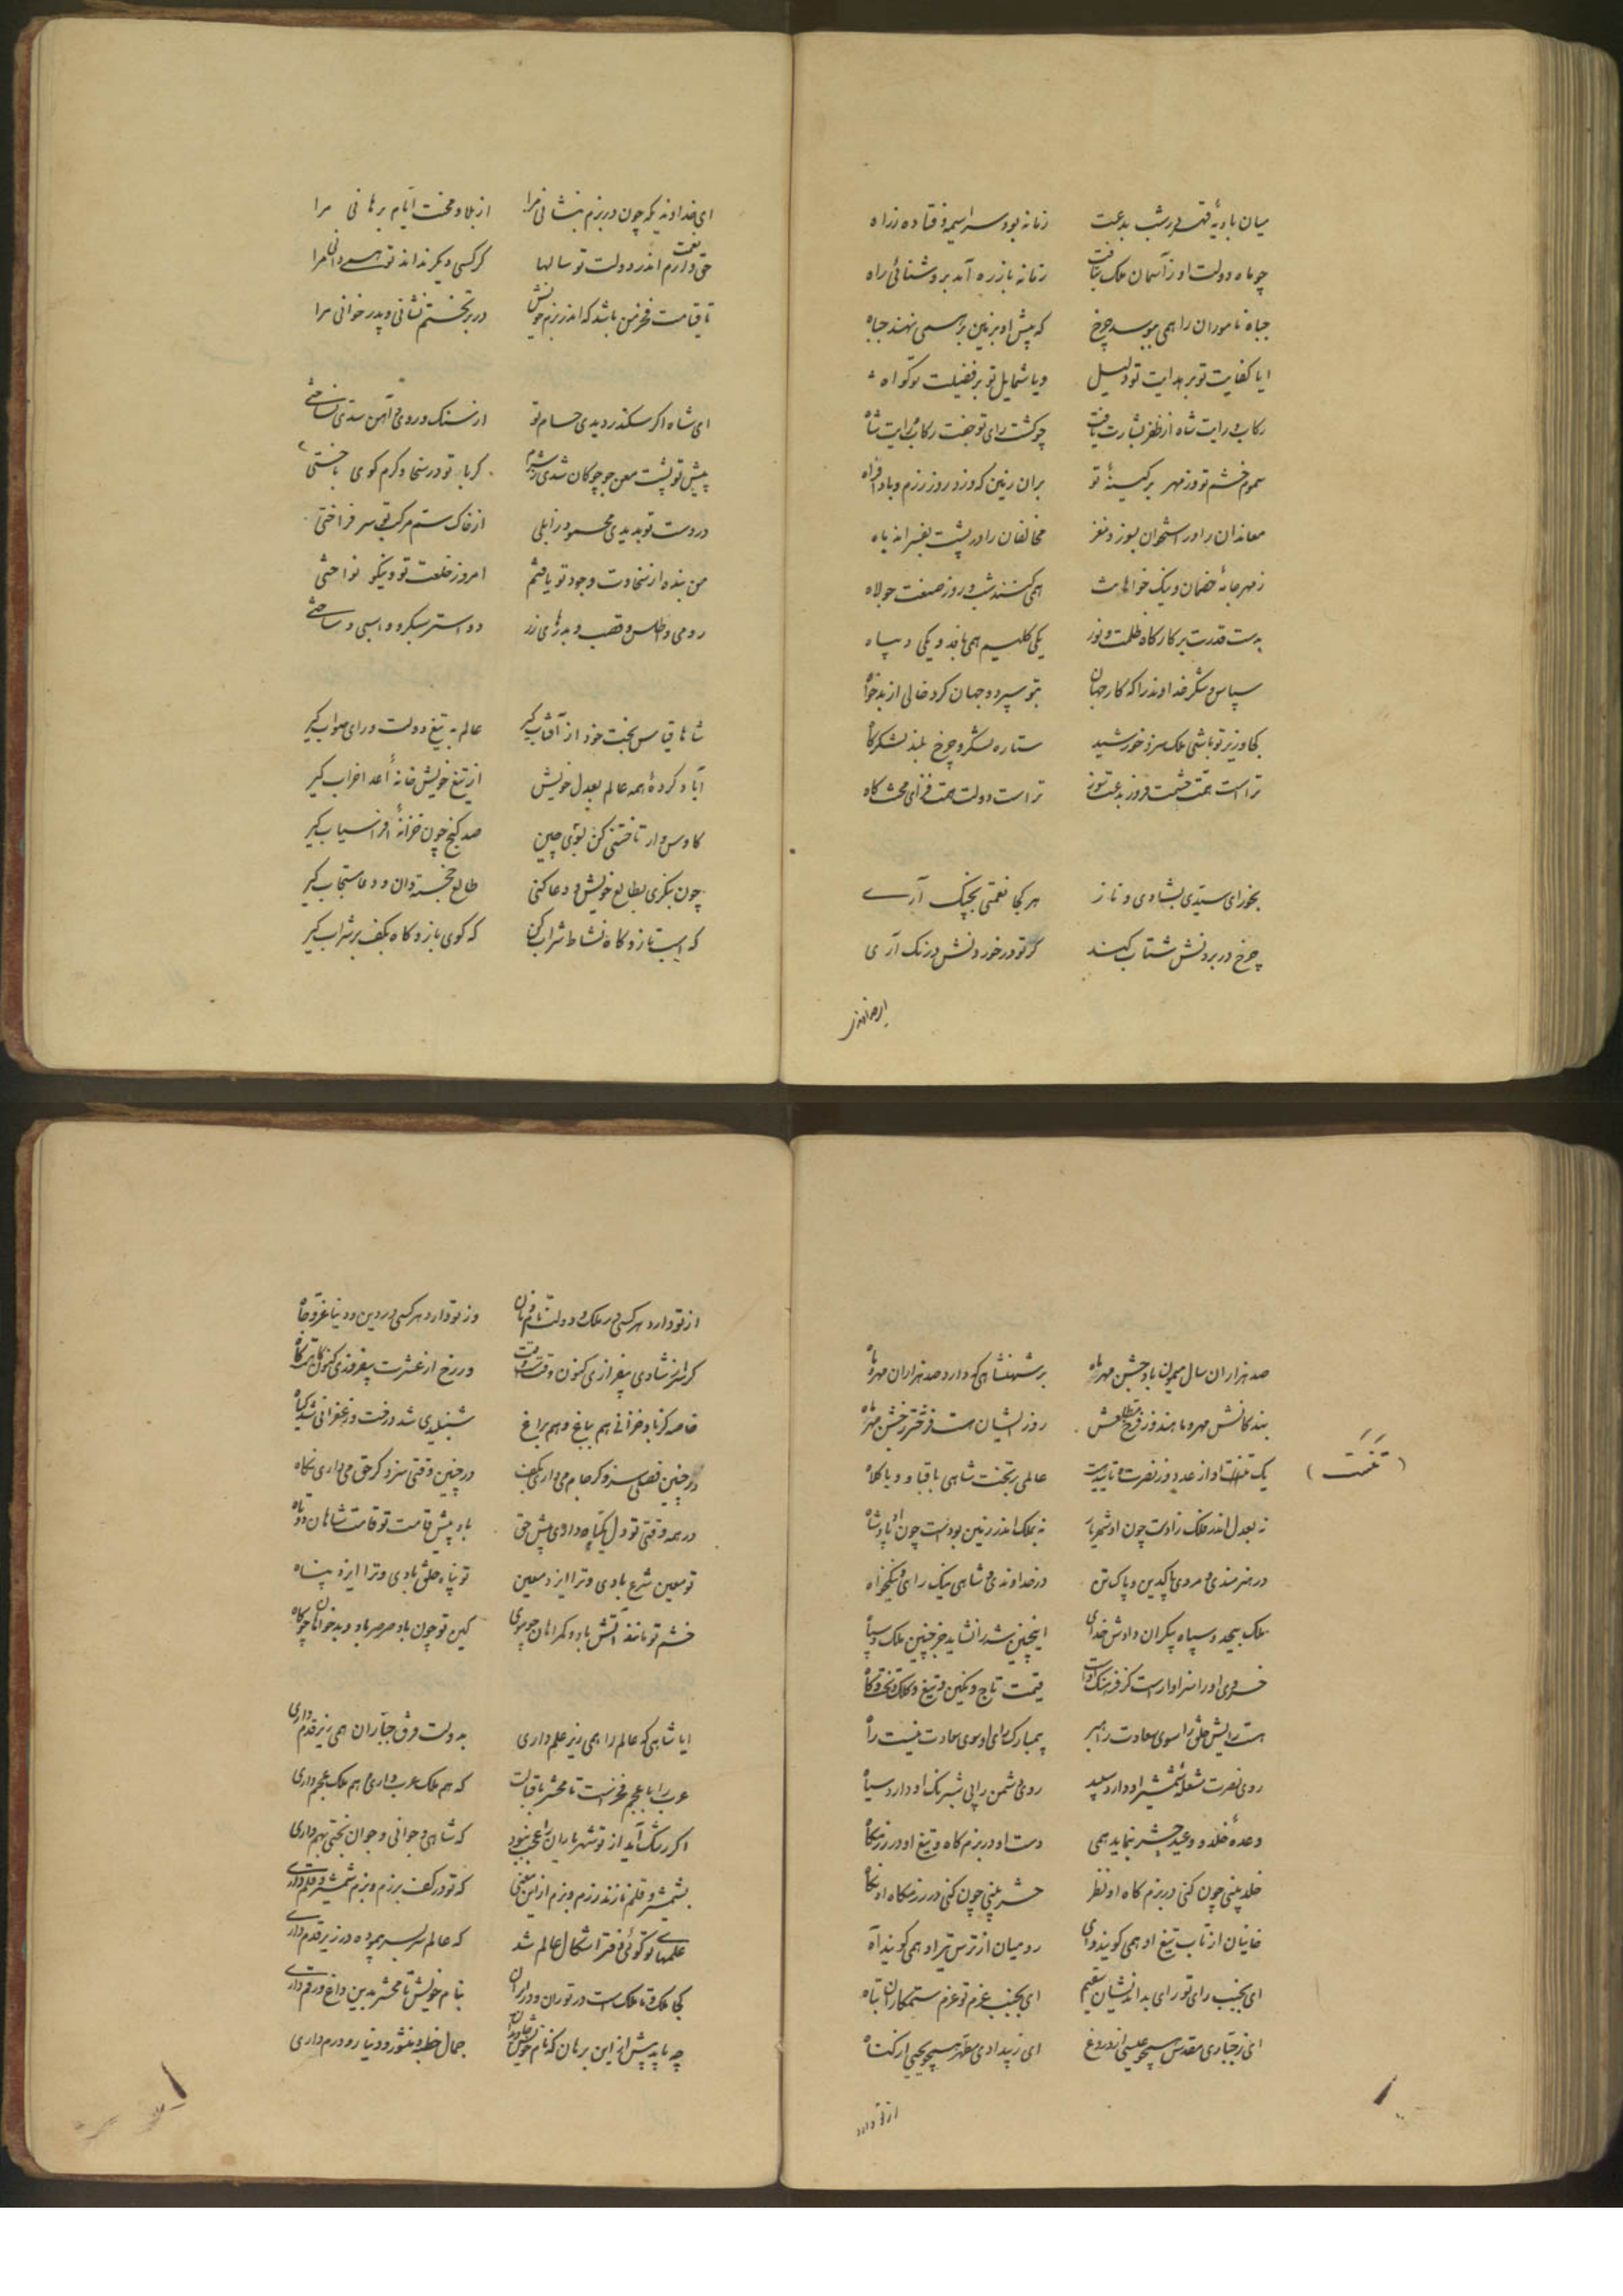 میان بادیه قهر در شب بدعت زمانه بود سراسیمه و فتاده ز راه
چو ماه دولت او ز آسمان ملک بتافت زمانه باز ره آمد بروشنائی راه
جباه ناموران را همی ببوسد چرخ که پیش او بزمین بر همی نهند جباه
ایا کفایت تو بر هدایت تو دلیل ویا شمایل تو بر فضیلت تو کواه
رکاب و رایت شاه از ظفر بشارت یافت چو کشت رای تو جفت رکاب و رایت شاه
سموم خشم تو وزمهر بر کینهٔ تو بران زمین که وزد روز رزم و باد افراه
معاندان را در استخوان بسوزد مغز مخالفان را در پشت بفسراند باه
ز مهر جامهٔ خصمان و نیک خواهانت همی کنند شب و روز صنعت جولاه
بدست قدرت بر کارگاه ظلمت و نور یکی کلیم همی بافد و یکی دیباه
سپاس و شکر خداوند را که کار جهان بتو سپرد و جهان کرد خالی از بدخواه
کجا وزیر تو باشی ملک سزد خورشید ستاره لشکر و چرخ بلند لشکرگاه
تراست همت حشمت فروز بدعت سوز تراست دولت همت فزای محنت کاه
بخور ای سیدی بشادی و ناز هر کجا نعمتی بچنک آری
چرخ در بردنش شتاب کند کر تو در خوردنش درنک آری
ای خداوند
ای خداوندیکه چون در بزم بنشانی مرا از بلا و محنت ایام برهانی مرا
حق خدمت دارم اندر دولت تو سالها کر کسی دیگر نداند تو همی دانی مرا
تا قیامت فخر من باشد که اندر بزم خویش در بر تختم نشانی و پدر خوانی مرا
ای شاه اکر سکندر دیدی حسام تو از سنک و روی و آهن سدی نساختی
پیش تو پشت معن چو چوکان شدی ز شرم کر با تو در سخا و کرم کوی باختی
در دست تو بدیدی محمود زابلی از خاک ستم مرکب تو سر فراختی
من بنده از سخاوت وجود تو یافتم امروز خلعت تو و نیکو نواختی
رومی و اطلس و قصب و بدرهای زر دو استر سبکرو و اسبی و ساختی
شاها قیاس بخت خود از آفتاب گیر عالم به تیغ دولت و رای صواب گیر
آباد کردهٔ همه عالم بعدل خویش از تیغ خویش خانهٔ اعدا خراب گیر
کاوس وار تاختنی کن بسوی چین صد کنج چون خزانهٔ افراسیاب گیر
چون بنگری بطالع خویش و دعا کنی طالع خجسته دان و دعا مستجاب گیر
که اسب تاز و کاه نشاط شراب کن که کوی باز و کاه بکف بر شراب گیر
صد هزاران سال میمون باد جشن مهر ماه بر شهنشاهی که دارد صد هزاران مهر و ماه
بندکانش مهر و ماهند و ز فرخ طلعتش روز ایشان هست فرختر ز جشن مهر ماه
(تنست)
یک تنست او از عدد وز نصرت و تاییدت عالمی بر تخت شاهی با قبا و با کلاه
نه بعدل اندر فلک زادست چون او شهریار نه بملک اندر زمین بودست چون او پادشاه
در هنرمندی و مردی پاکدین و پاک تن در خداوندی و شاهی نیک رای و نیکخواه
ملک بیحد و سپاه بیکران دادش خدای اینچنین شه را نشاید جز چنین ملک و سپاه
خسروی او را سزاوارست کز فرهنک اوست قیمت تاج و نکین و تیغ و کلک و تخت و کاه
هست رایش خلق را سوی سعادت راهبر بیمبارک رای او سوی سعادت نیست راه
روی نصرت شعلهٔ شمشیر او دارد سپید روی دشمن را پی شبرنک او دارد سیاه
وعدهٔ خلد و وعید حشر بنماید همی دست او در بزم کاه و تیغ او در رزمکاه
خلد بینی چون کنی در بزم کاه او نظر حشر بینی چون کنی در رزمکاه او نکاه
خانیان از تاب تیغ او همی کویند وای رومیان از ترس تیر او همی کویند آه
ای بجنب رای تو رای بداندیشان سقیم ای بجنب عزم تو عزم ستمکاران تباه
ای ز جباری مقدس همچو عیسی از دروغ ای ز بیدادی مطهر همچو یحیی از کناه
از تو دارد
از تو دارد هر کسی در ملک و دولت نام و نان وز تو دارد هر کسی در دین و دنیا عز و جاه
کر سر از شادی بیفرازی کنون وقتست وقت ور رخ از عشرت بیفروزی کنون کاهست کاه
خاصه کز باد خزانی هم بباغ و هم براغ شنبلیدی شد درخت و زعفرانی شد کیاه
در چنین فصلی سزد کر جام می داری بکف در چنین وقتی سزد کر حق می داری نکاه
در همه وقتی تو دل یکتاه داری پیش حق باد پیش قامت تو قامت شاهان دوتاه
تو معین شرع بادی و ترا ایزد معین تو پناه خلق بادی و ترا ایزد پناه
خشم تو مانند آتش باد و کمراهان چو موی کین تو چون باد صرصر باد و بدخواهان چو کاه
ایا شاهی که عالم را همی زیر علم داری بدولت فرق جباران همی زیر قدم داری
عرب را با عجم فخرست تا محشر باقبالت که هم ملک عرب داری و هم ملک عجم داری
اکر رشک آید از تو شهریاران را عجب نبود که شاهی و جوانی و جوان بختی بهم داری
بشمشیر و قلم نازند رزم و بزم ازین معنی که تو در کف برزم و بزم شمشیر و قلم داری
علمهای تو کوئی دفتر اشکال عالم شد که عالم سر بسر پیموده در زیر قدم داری
کجا ملک و تا ملکست در توران و در ایران بنام خویش تا محشر بدین داغ و رقم داری
چه باید بیش ازین برهان که نام خویش جمال خطبه و منشور و دینار و درم داری